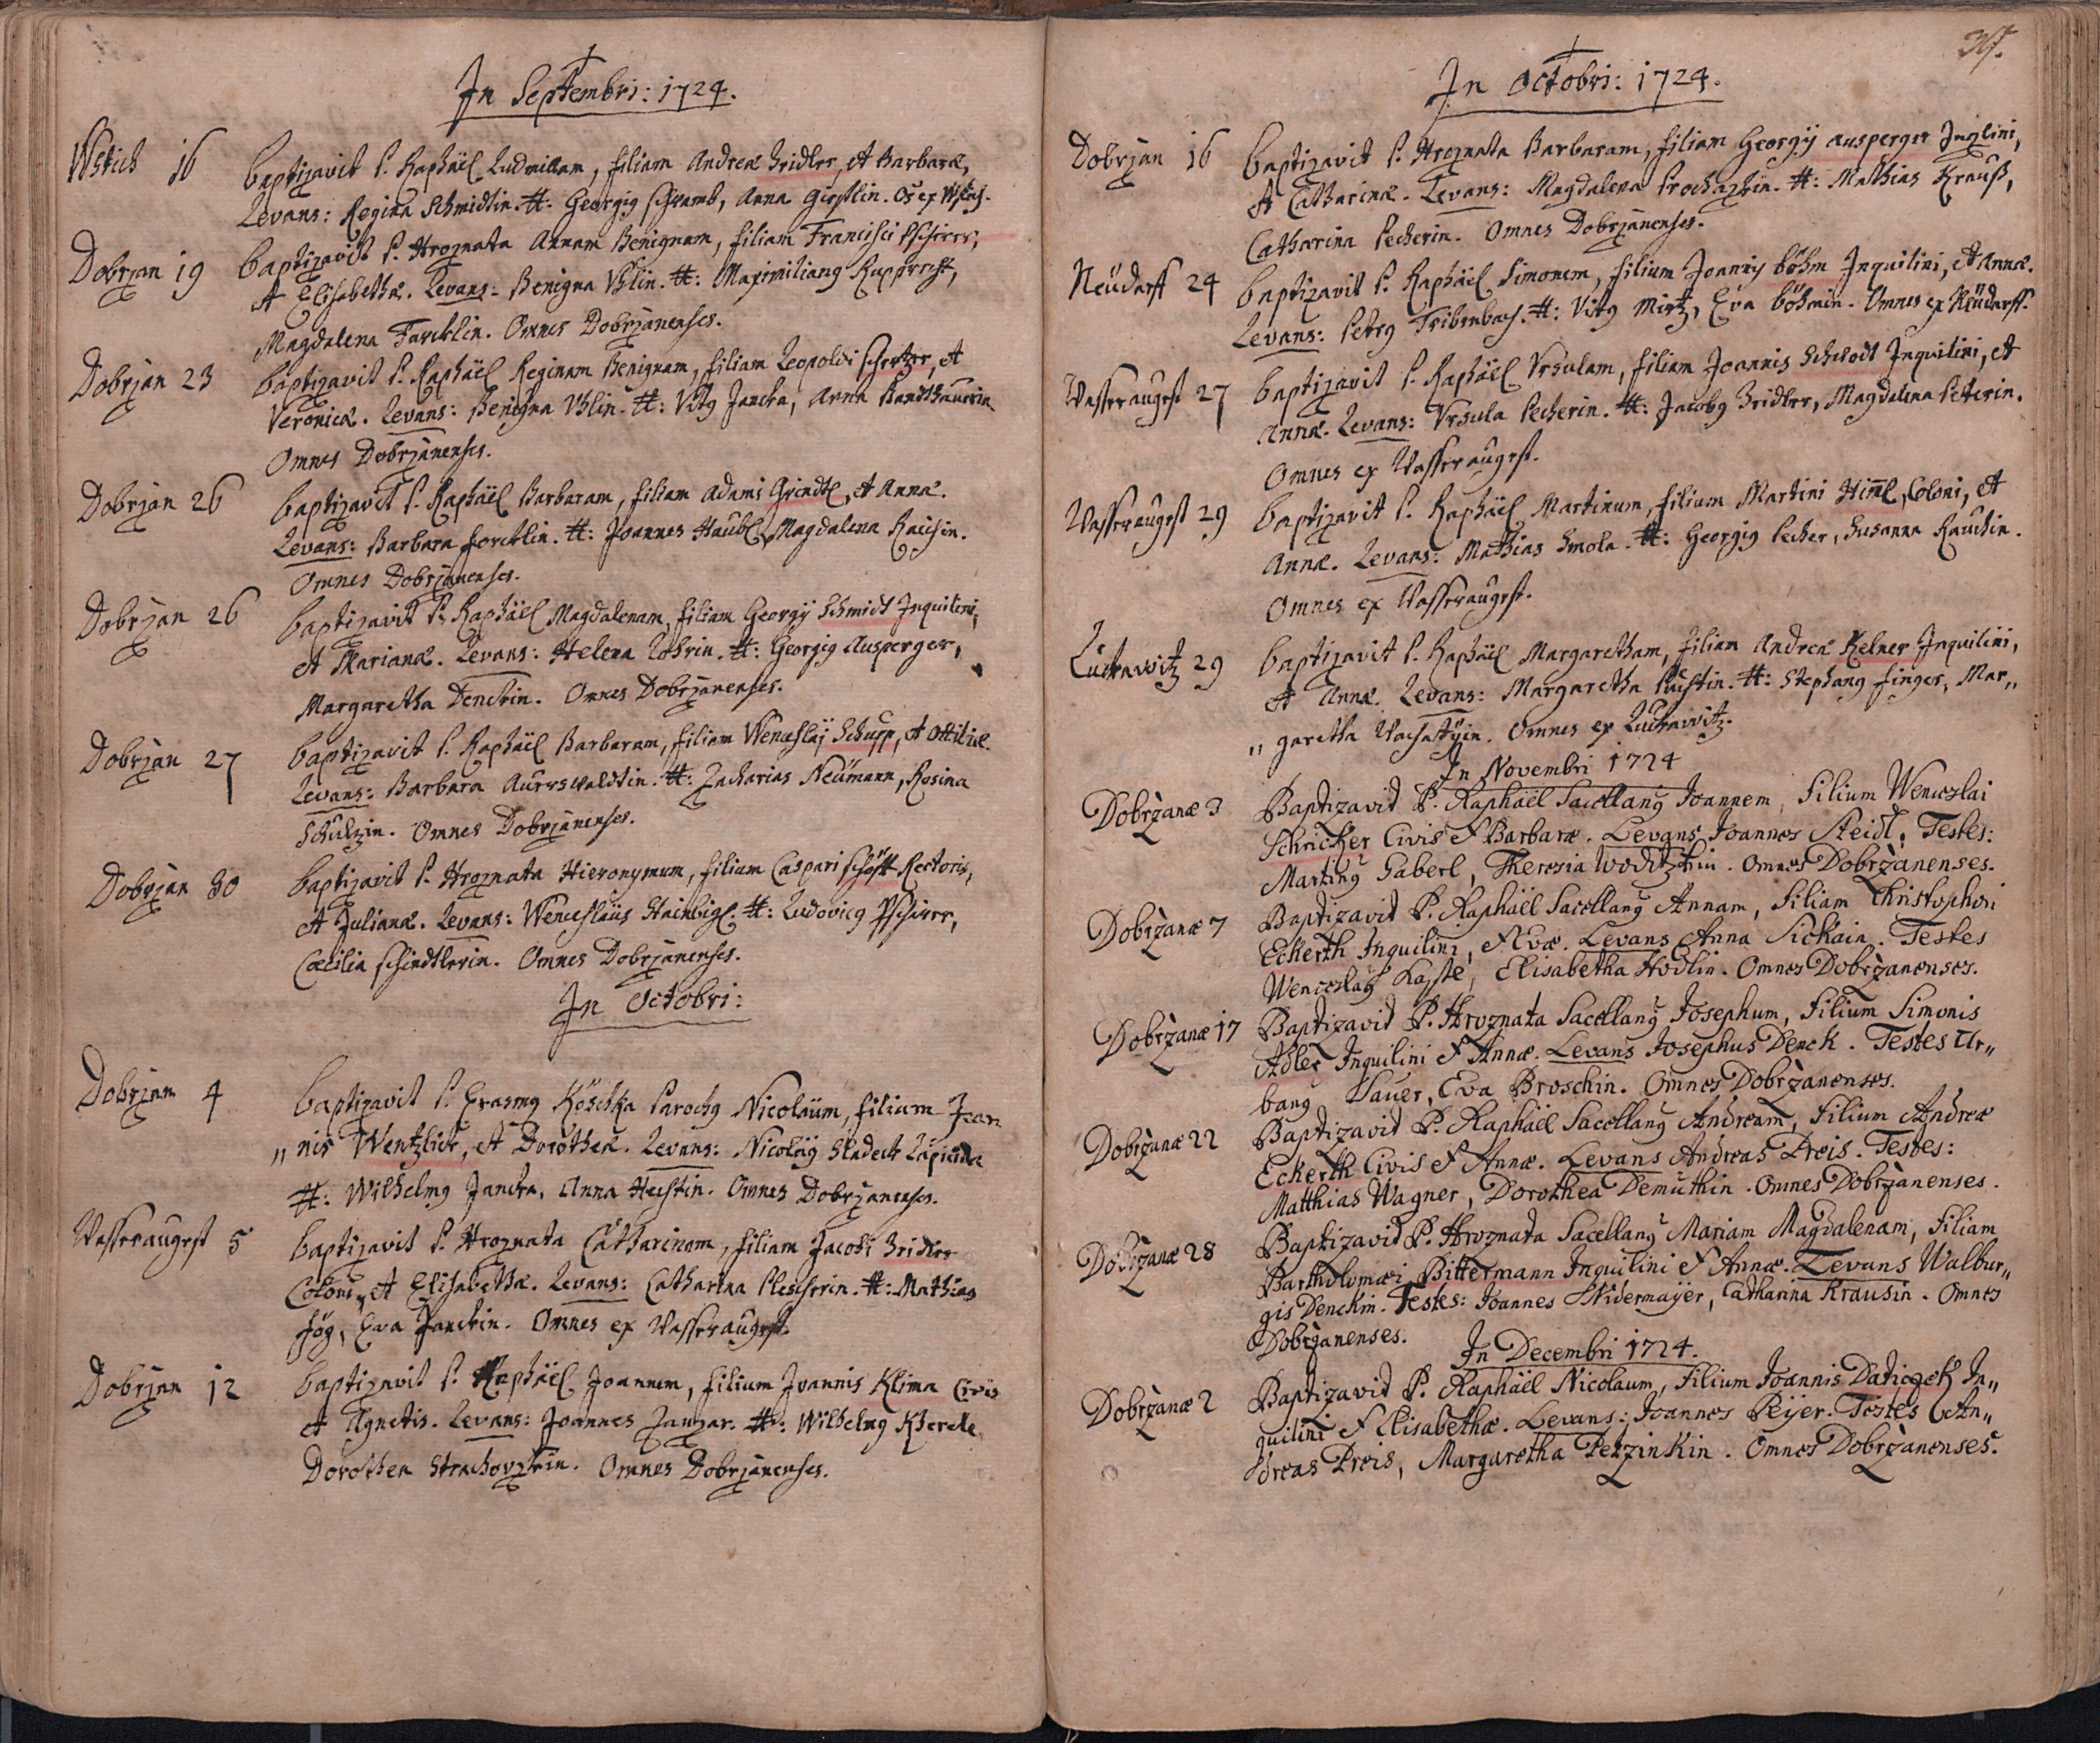 In Septembri: 1724.
Wstich 16 baptizavit P. Raphäel Ludmillam, filiam Andreæ Bridler, et Barbaræ,
Levans: Regina Schmidtin. tt: Georgig Schramb, Anna Girstlin. Os ex Wstich.
Dobrzan 19 baptizavit P. Hroznata Annam Benignam, filiam Francisci Pschirer,
et Elisabethæ. Levans: Benigna Vhlin. tt: Maximiliang Rupprecht,
Magdalena Farcklin. Omnes Dobrzanenses.
Dobrzan 23 baptizavit P. Raphäel Reginam Benignam, filiam Leopoldi Schertzer, et
Veronicæ. Levans: Benigna Vhlin. tt: Vitg Jancka, Anna
Omnes Dobrzanenses.
Dobrzan 26 baptizavit P. Raphäel Barbaram, filiam Adami Grindtl, et Annæ.
Levans: Barbara Forcklin. tt: Joannes Haubl, Magdalena
Omnes Dobrzanenses.
Dobrzan 26 baptizavit P. Raphäel Magdalenam, filiam Georgÿ Schmidt Inquilini,
et Marianæ. Levans: Helena Lohrin. tt: Georgig Ausperger,
Margaretha Denckin. Omnes Dobrzanenses.
Dobrzan 27 baptizavit P. Raphäel Barbaram, filiam Wenceslaj Schupp, et Ottiliæ.
Levans: Barbara Auerswaldtin. tt: Zacharias Neümann, Rosina
Schultzin. Omnes Dobrzanenses.
Dobrzan 30 baptizavit P. Hroznata Hieronymum, filium Caspari Rectoris,
et Julianæ. Levans: Wenceslaüs Stainbigl. tt: Ludovicg Pschirer,
Cæcilia Schindtlerin. Omnes Dobrzanenses.
In Octobri:
Dobrzan 4 baptizavit P. Erasmg Köschka Parochg Nicolaüm, filium Joan
,, nis Wentzlick, et Dorotheæ. Levans: Nicolaig Sladeck Lapicida
tt: Wilhelmg Jancka, Anna Hechtin. Omnes Dobrzanenses.
Wasseraugest 5 baptizavit P. Hroznata Catharinam, filiam Jacobi Bridler
Coloni, et Elisabethæ. Levans: Catharina Pleschrin. tt: Mathias
Jög, Eva Janckin. Omnes ex Wasseraugest.
Dobrzan 12 baptizavit P. Raphäel Joannem, filium Joannis Klima Civis
et Agnetis. Levans: Joannes Janzar. tt: Wilhelmg
Dorothea Strachovzkin. Omnes Dobrzanenses.
In Octobri: 1724.
Dobrzan 16 baptizavit P. Hroznata Barbaram, filiam Georgÿ Ausperger Inqlini,
et Catharinæ. Levans: Magdalena Prochazkin. tt: Mathias Krauß,
Catharina Pecherin. Omnes Dobrzanenses.
Neüdorff 24 baptizavit P. Raphäel Simonem, filium Joannis böhm Inquilini, et Annæ.
Levans: Petrg Tribenbach. tt: Vitg Mirtz, Eva böhmin. Omnes ex Neüdorff.
Wasseraugest 27 baptizavit P. Raphäel Vrsulam, filiam Joannis Schlodt Inquilini, et
Annæ. Levans: Vrsula Pecherin. tt: Jacobg Bridler, Magdalena Peterin.
Omnes ex Wasseraugest.
Wasseraugest 29 baptizavit P. Raphäel Martinum, filium Martini Himl, Coloni, et
Annæ. Levans: Mathias Smola. tt: Georgig Pecher, Susanna Rauchin.
Omnes ex Wasseraugest.
Luckawitz 29 baptizavit P. Raphäel Margaretham, filiam Andreæ Kelner Inquilini,
et Annæ. Levans: Margaretha Puchtin. tt: Stephang Finger, Mar,,
,, garetha Omnes ex Luckawitz.
In Novembri 1724
Dobrzanæ 3 Baptizavid P. Raphäel Sacellang Joannem, Filium Wenceslai
Schricker Civis & Barbaræ. Levans Joannes Steidl, Testes:
Marting Gaberl, Theresia Woditzkin. Omnes Dobrzanenses.
Dobrzanæ 7 Baptizavid P. Raphäel Sacellang Annam, Filiam Christophori
Eckerth Inquilini, & Evæ. Levans Anna Sickain. Testes
Wenceslag Kaste, Elisabetha Hodlin. Omnes Dobrzanenses.
Dobrzanæ 17 Baptizavid P. Hroznata Sacellang Josephum, Filium Simonis
Adler Inquilini & Annæ. Levans Josephus Denck. Testes Ur,,
bang Sauer, Eva Broschin. Omnes Dobrzanenses.
Dobrzanæ 22 Baptizavid P. Raphäel Sacellang Andream, Filium Andreæ
Eckerth Civis & Annæ. Levans Andreas Preis. Testes:
Matthias Wagner, Dorothea Demuthin. Omnes Dobrzanenses.
Dobrzanæ 28 Baptizavid P. Hroznata Sacellang Mariam Magdalenam, Filiam
Bartholomæi Bittermann Inquilini & Annæ. Levans Walbur,,
gis Denckin. Testes: Joannes Nidermaÿer, Catharina Krausin. Omnes
Dobrzanenses.
In Decembri 1724.
Dobrzanæ 2 Baptizavid P. Raphäel Nicolaum, Filium Joannis Datiezek In,,
quilini & Elisabethæ. Levans: Joannes Peÿer. Testes An,,
dreas Preis, Margaretha Petzinkin. Omnes Dobrzanenses.